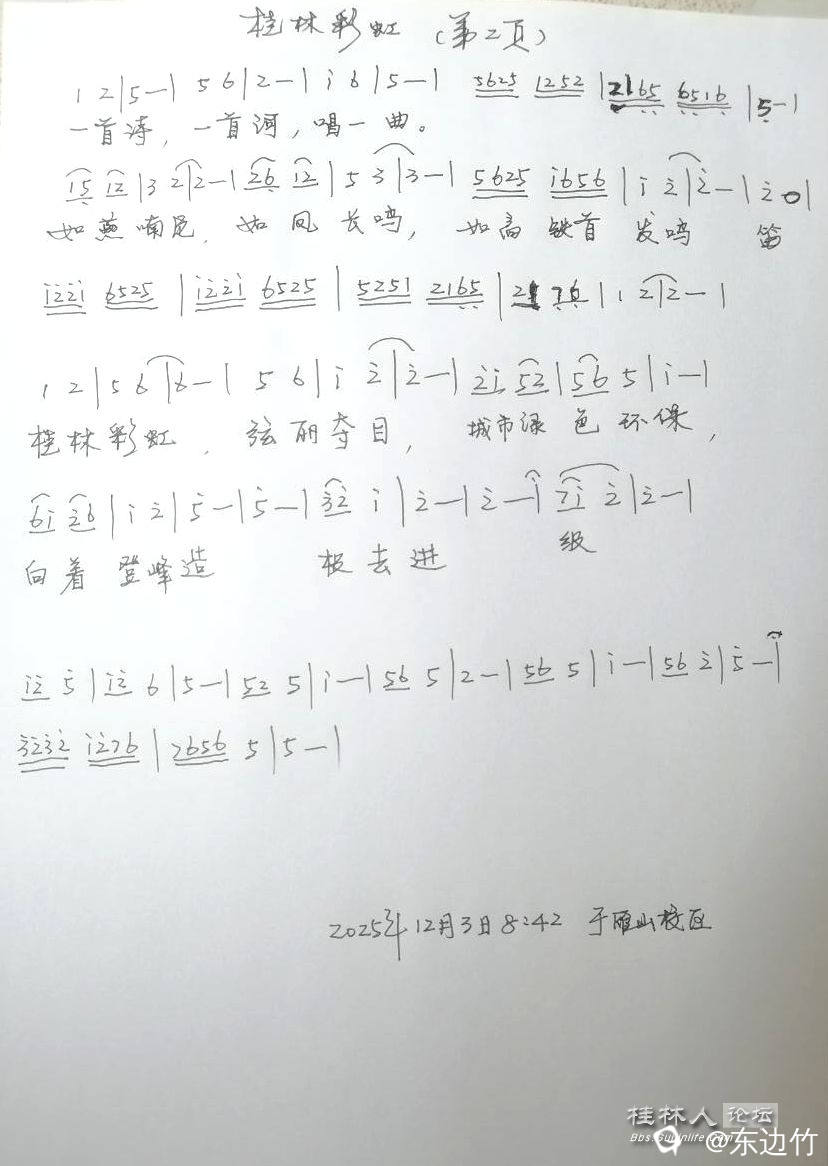 桂林彩虹 (第2页)
1 2|5-| 5 6|2-| i 6|5-| 5625 1252 |2165 6516 |5-|
一首诗, 一首词, 唱一曲。
15 12 |3 2|2-|26 12|5 3|3-| 5625 i656 |i 2̇|2̇-|2̇ 0|
如燕喃呢, 如凤长鸣, 如高铁首发鸣笛
i2̇2̇i 6525 |i2̇2̇i 6525 |5251 2165 |2 76 |1 2|2-|
1 2|5 6|6-| 5 6|i 2̇|2̇-| 2̇i 52̇|56 5|i-|
桂林彩虹, 炫丽夺目, 城市绿色环保,
6i 2̇6|i 2̇|5̇-|5̇-| 3̇2̇ i|2̇-|2̇-| 2̇i 2̇|2̇-|
向着登峰造 极去进 级
i2̇ 5̇|i2̇ 6|5-|52 5|i-|56 5|2-|56 5|i-|56 2̇|5̇-|
3̇2̇3̇2̇ i2̇76 |7656 5|5-|
2025年12月3日8:42 于雁山校区
桂林人论坛
Bbs.Guilinlife.Com
@东边竹